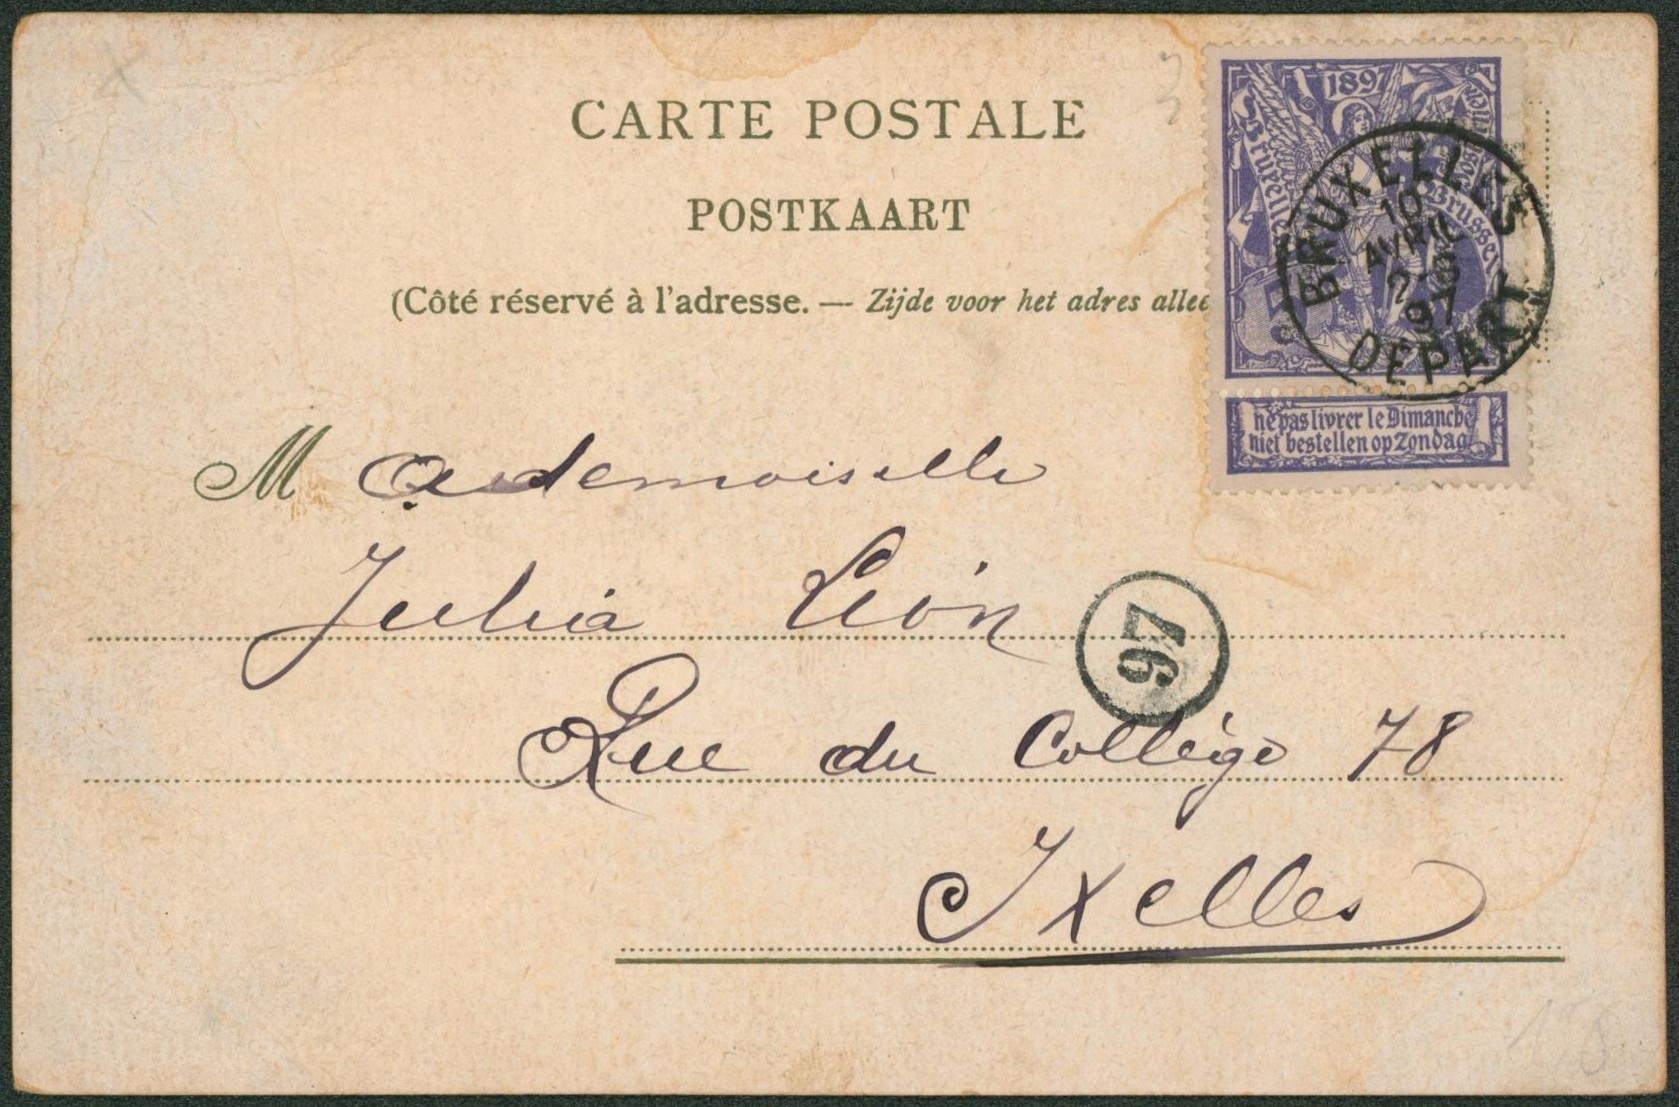 CARTE POSTALE
POSTKAART
(Côté réservé à l'adresse. — Zijde voor het adres allee
1897
Bruxelles
Brussel
5
BRUXELLES
10
AVRIL
97
DEPART
ne pas livrer le Dimanche
niet bestellen op Zondag
Mademoiselle
Julia Léon
97
Rue du Collège 78
Ixelles
158